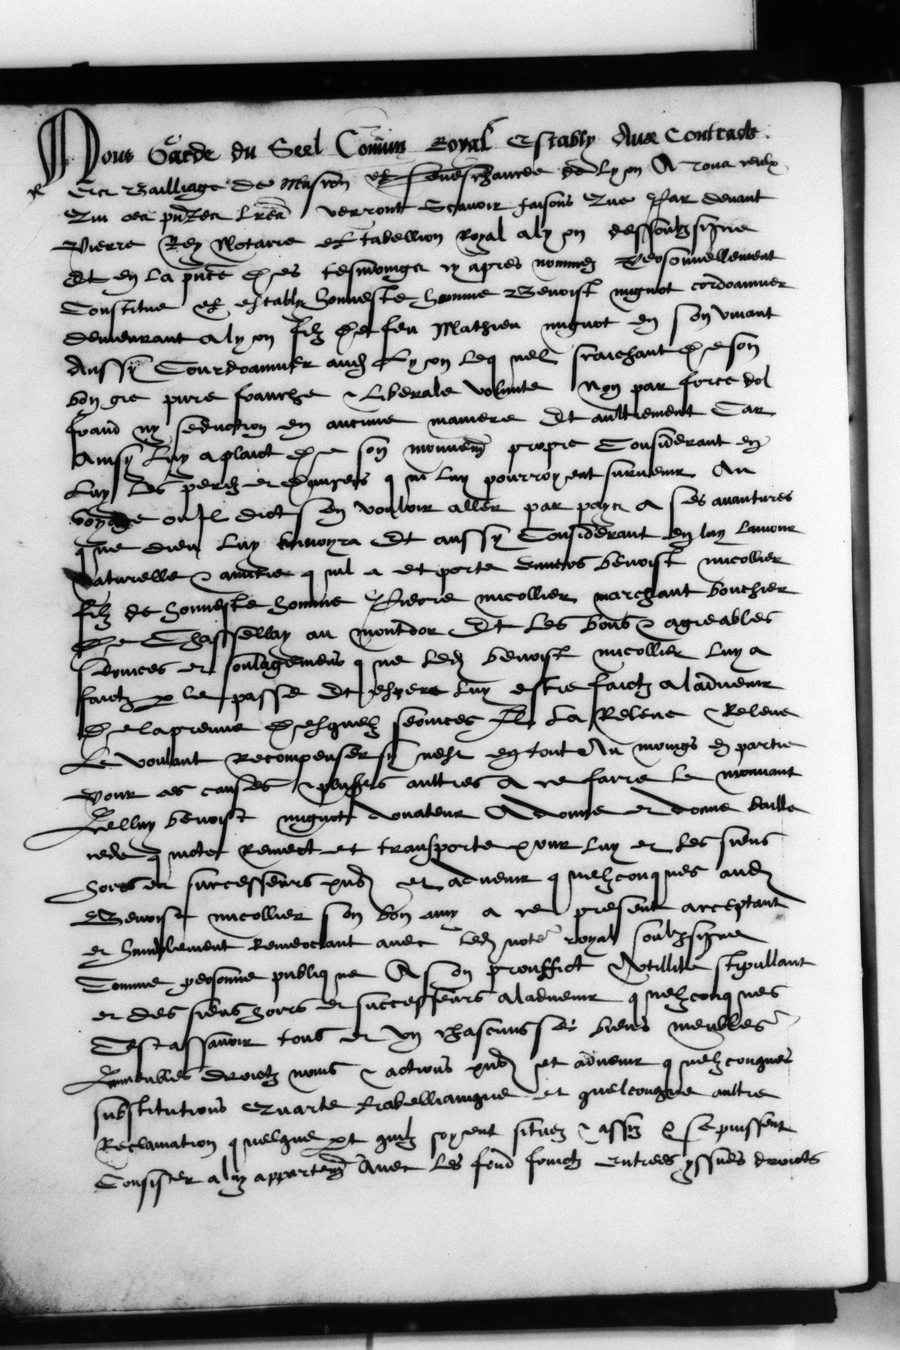 Nous Garde du Seel Commun Royal Estably Aux Contractz
Es Bailliage de Mascon et seneschaucee de Lyon A tous ceulx
Qui ces pntes lres verront Scavoir faisons Que Par devant
Pierre Rey Notaire et tabellion Royal a lyon dessoubzsigne
Et en la pnce des tesmoings cy apres nommez Personnellement
Constitue et estably honneste homme Benoist mignot cordoannier
demeurant a lyon filz de feu Mathieu mignot en son vivant
Aussy Courdoannier aud Lyon Lequel saichant de son
bon gre pure franche & Liberale volunte Non par force dol
fraud ny seduction en aucune maniere Et aultrement Car
Ainsy Luy a plaict de son mouvem propre Considerant en
Luy Les perilz et dangiers qui luy pourroyent survenir Au
voyage ou Il dict sen vouloir aller par pays a ses avantures
que dieu Luy envoyra Et aussy Considerant en luy lamour
naturelle & amitie quil a et porte envers benoist nicollier
filz de honneste homme Pierre nicollier marchant bouchier
de Chasselay au montdor Et Les bons & agreables
services et soulagemens que led benoist nicollier Luy a
faictz par le passe Et espere Luy estre faictz a ladvenir
de la preuve desquelz services Il La Releve & Releve
Le voulant Recompenser sy nest en tout Au moings en partie
Pour ces causes & plusrs aultres a ce faire le mouvant
Icelluy benoist mignot donateur A donne et donne baille
cede quicte Remect et transporte pour Luy et Les siens
hoirs et successeurs pns et advenir quelzconques aud
Benoist nicollier son bon amy a ce present acceptant
et humblement Remerciant avec led note royal soubzsigne
Comme personne publique A son prouffict & utillite stipullant
et des siens hoirs et successeurs a ladvenir quelzconques
Cest assavoir tous et un chascuns ses biens meubles
Immeubles droictz noms & actions pns et advenir quelzconques
substitutions Quarte trebellianique et quelconque aultre
Reclamation quelque pt quilz soyent situez & assis & se puissent
Consister a luy appartenz Avec Les fond fruictz entrees yssues droicts